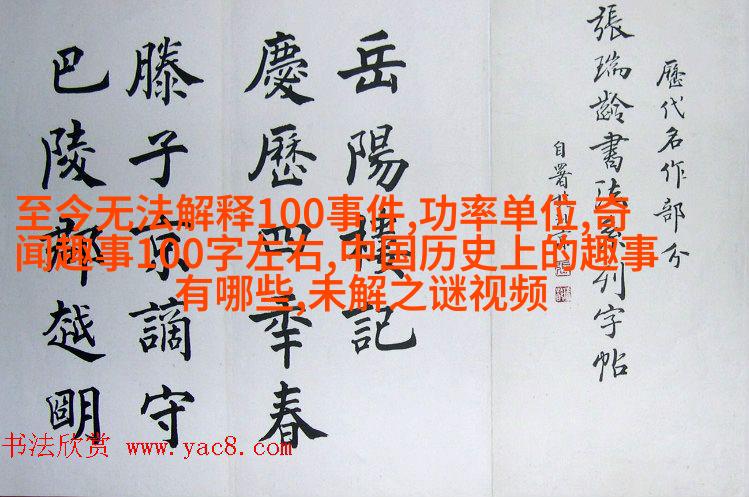 歷代名作部分
張瑞齡書法系列字帖
自署
岳陽樓記
慶歷四年春
滕子京謫守
巴陵郡越明
至今无法解释100事件,功率单位,奇
闻趣事100字左右,中国历史上的趣事
有哪些,未解之谜视频
书法欣赏 www.yac8.com